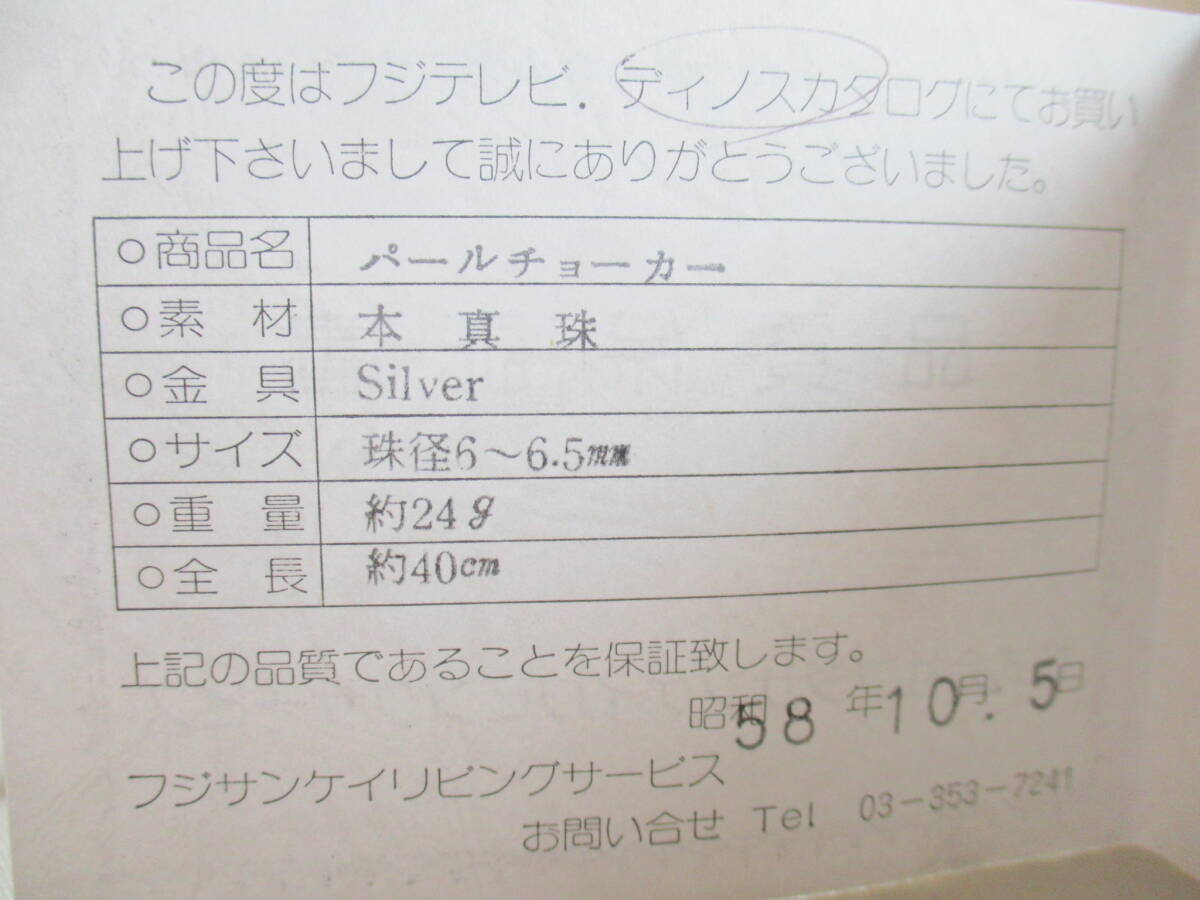 この度はフジテレビ．ディノスカタログにてお買い
上げ下さいまして誠にありがとうございました。
○商品名 パールチョーカー
○素　材 本　真　珠
○金　具 Silver
○サイズ 珠径6～6.5mm
○重　量 約24g
○全　長 約40cm
上記の品質であることを保証致します。
昭和58年10月．5日
フジサンケイリビングサービス
お問い合せ Tel 03－353－7241